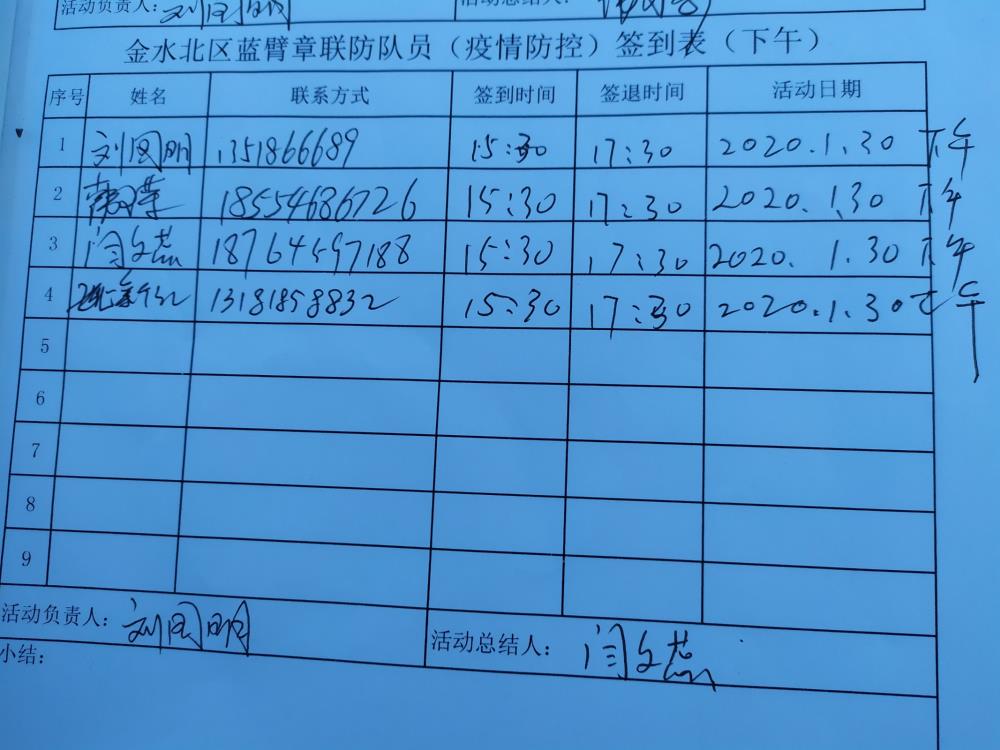 活动负责人：
活动总结人：
金水北区蓝臂章联防队员（疫情防控）签到表（下午）
序号 姓名 联系方式 签到时间 签退时间 活动日期
1 刘国明 1351866689 15:30 17:30 2020.1.30 下午
2 18554686726 15:30 17:30 2020.1.30 下午
3 闫文蕊 18764597188 15:30 17:30 2020.1.30 下午
4 13181858832 15:30 17:30 2020.1.30 下午
5
6
7
8
9
活动负责人：刘国明 活动总结人：闫文蕊
小结：